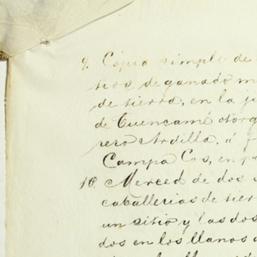 9. Copia simple de
tios de ganado m
de tierra, en la j
de Cuencamé otorg
rero Ardilla, á f
Campa Cos, en p
10. Merced de dos
caballerias de tier
un sitio y las dos
dos en los llanos d